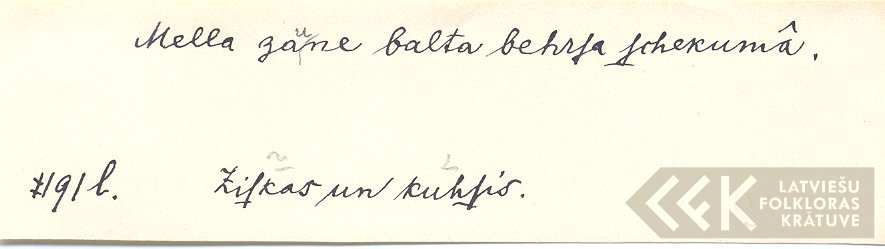 Mella zaune balta behrsa schekumâ.
191 b. Ziskas un kuhsis.
LATVIEŠU
FOLKLORAS
KRĀTUVE